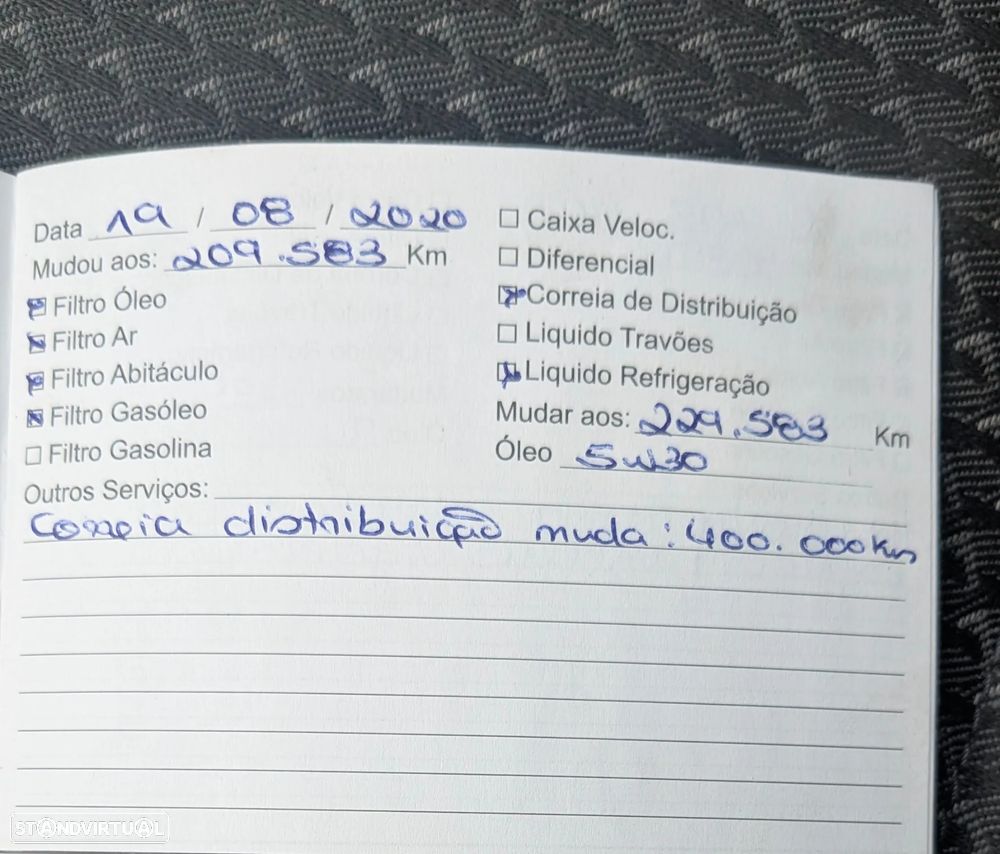 Data 19 / 08 / 2020
Mudou aos: 209.583 Km
Filtro Óleo
Filtro Ar
Filtro Abitáculo
Filtro Gasóleo
Filtro Gasolina
Caixa Veloc.
Diferencial
Correia de Distribuição
Liquido Travões
Liquido Refrigeração
Mudar aos: 229.583 Km
Óleo 5w30
Outros Serviços:
Correia distribuição muda: 400.000Km
STANDVIRTUAL